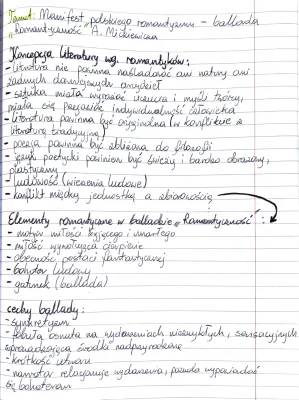 Temat: Manifest polskiego romantyzmu - ballada
"Romantyczność" A. Mickiewicza
Koncepcja literatury wg. romantyków:
- literatura nie powinna naśladować ani natury ani
żadnych dawniejszych
- sztuka miała wyrażać uczucia i myśli twórcy,
miała się indywidualność człowieka
- literatura powinna być oryginalna (w konflikcie z
literaturą tradycyjną)
- poezja powinna być zbliżona do filozofii
- język poetycki powinien być świeży i bardzo obrazowy,
plastyczny
- ludowość (wierzenia ludowe)
- konflikt między jednostką a zbiorowością
Elementy romantyczne w balladzie "Romantyczność":
- motyw miłości żyjącego i umarłego
- miłość wywołująca cierpienie
- obecność postaci fantastycznej
- bohater ludowy
- gatunek (ballada)
cechy ballady:
- synkretyzm
- fabuła osnuta na wydarzeniach niezwykłych, sensacyjnych
wprowadzająca środki nadprzyrodzone
- krótkość utworu
- narrator relacjonuje wydarzenia, pozwala wypowiadać
się bohaterom